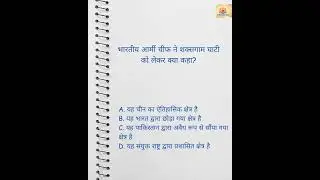 भारतीय आर्मी चीफ ने शक्सगाम घाटी
को लेकर क्या कहा?
A. यह चीन का ऐतिहासिक क्षेत्र है
B. यह भारत द्वारा छोड़ा गया क्षेत्र है
C. यह पाकिस्तान द्वारा अवैध रूप से सौंपा गया
क्षेत्र है
D. यह संयुक्त राष्ट्र द्वारा प्रशासित क्षेत्र है